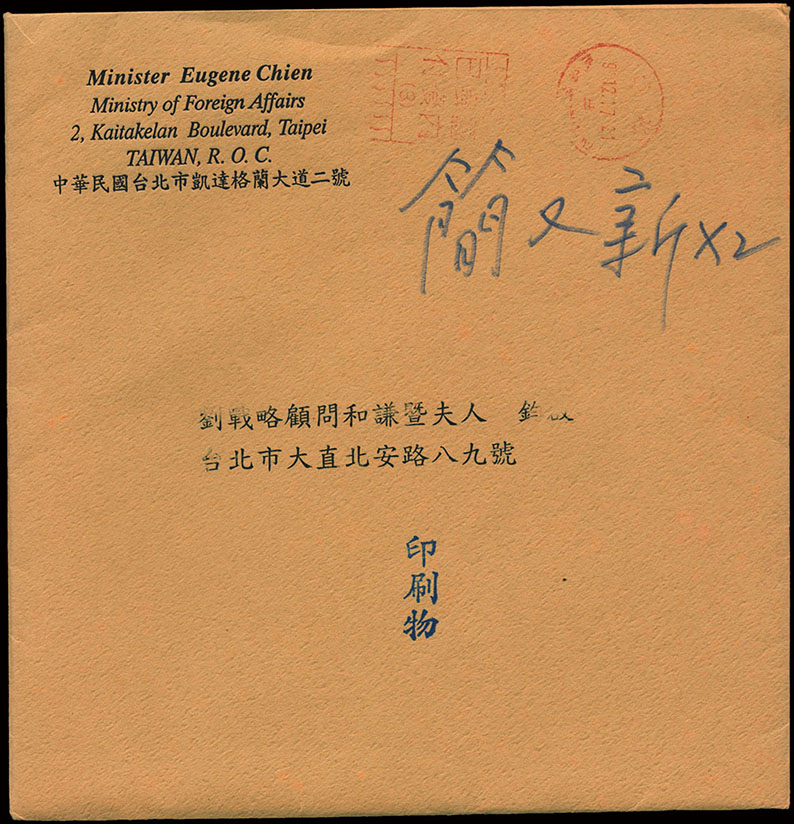 Minister Eugene Chien
Ministry of Foreign Affairs
2, Kaitakelan Boulevard, Taipei
TAIWAN, R. O. C.
中華民國台北市凱達格蘭大道二號
簡又新 X2
劉戰略顧問和謙暨夫人 鈞啟
台北市大直北安路八九號
印刷物